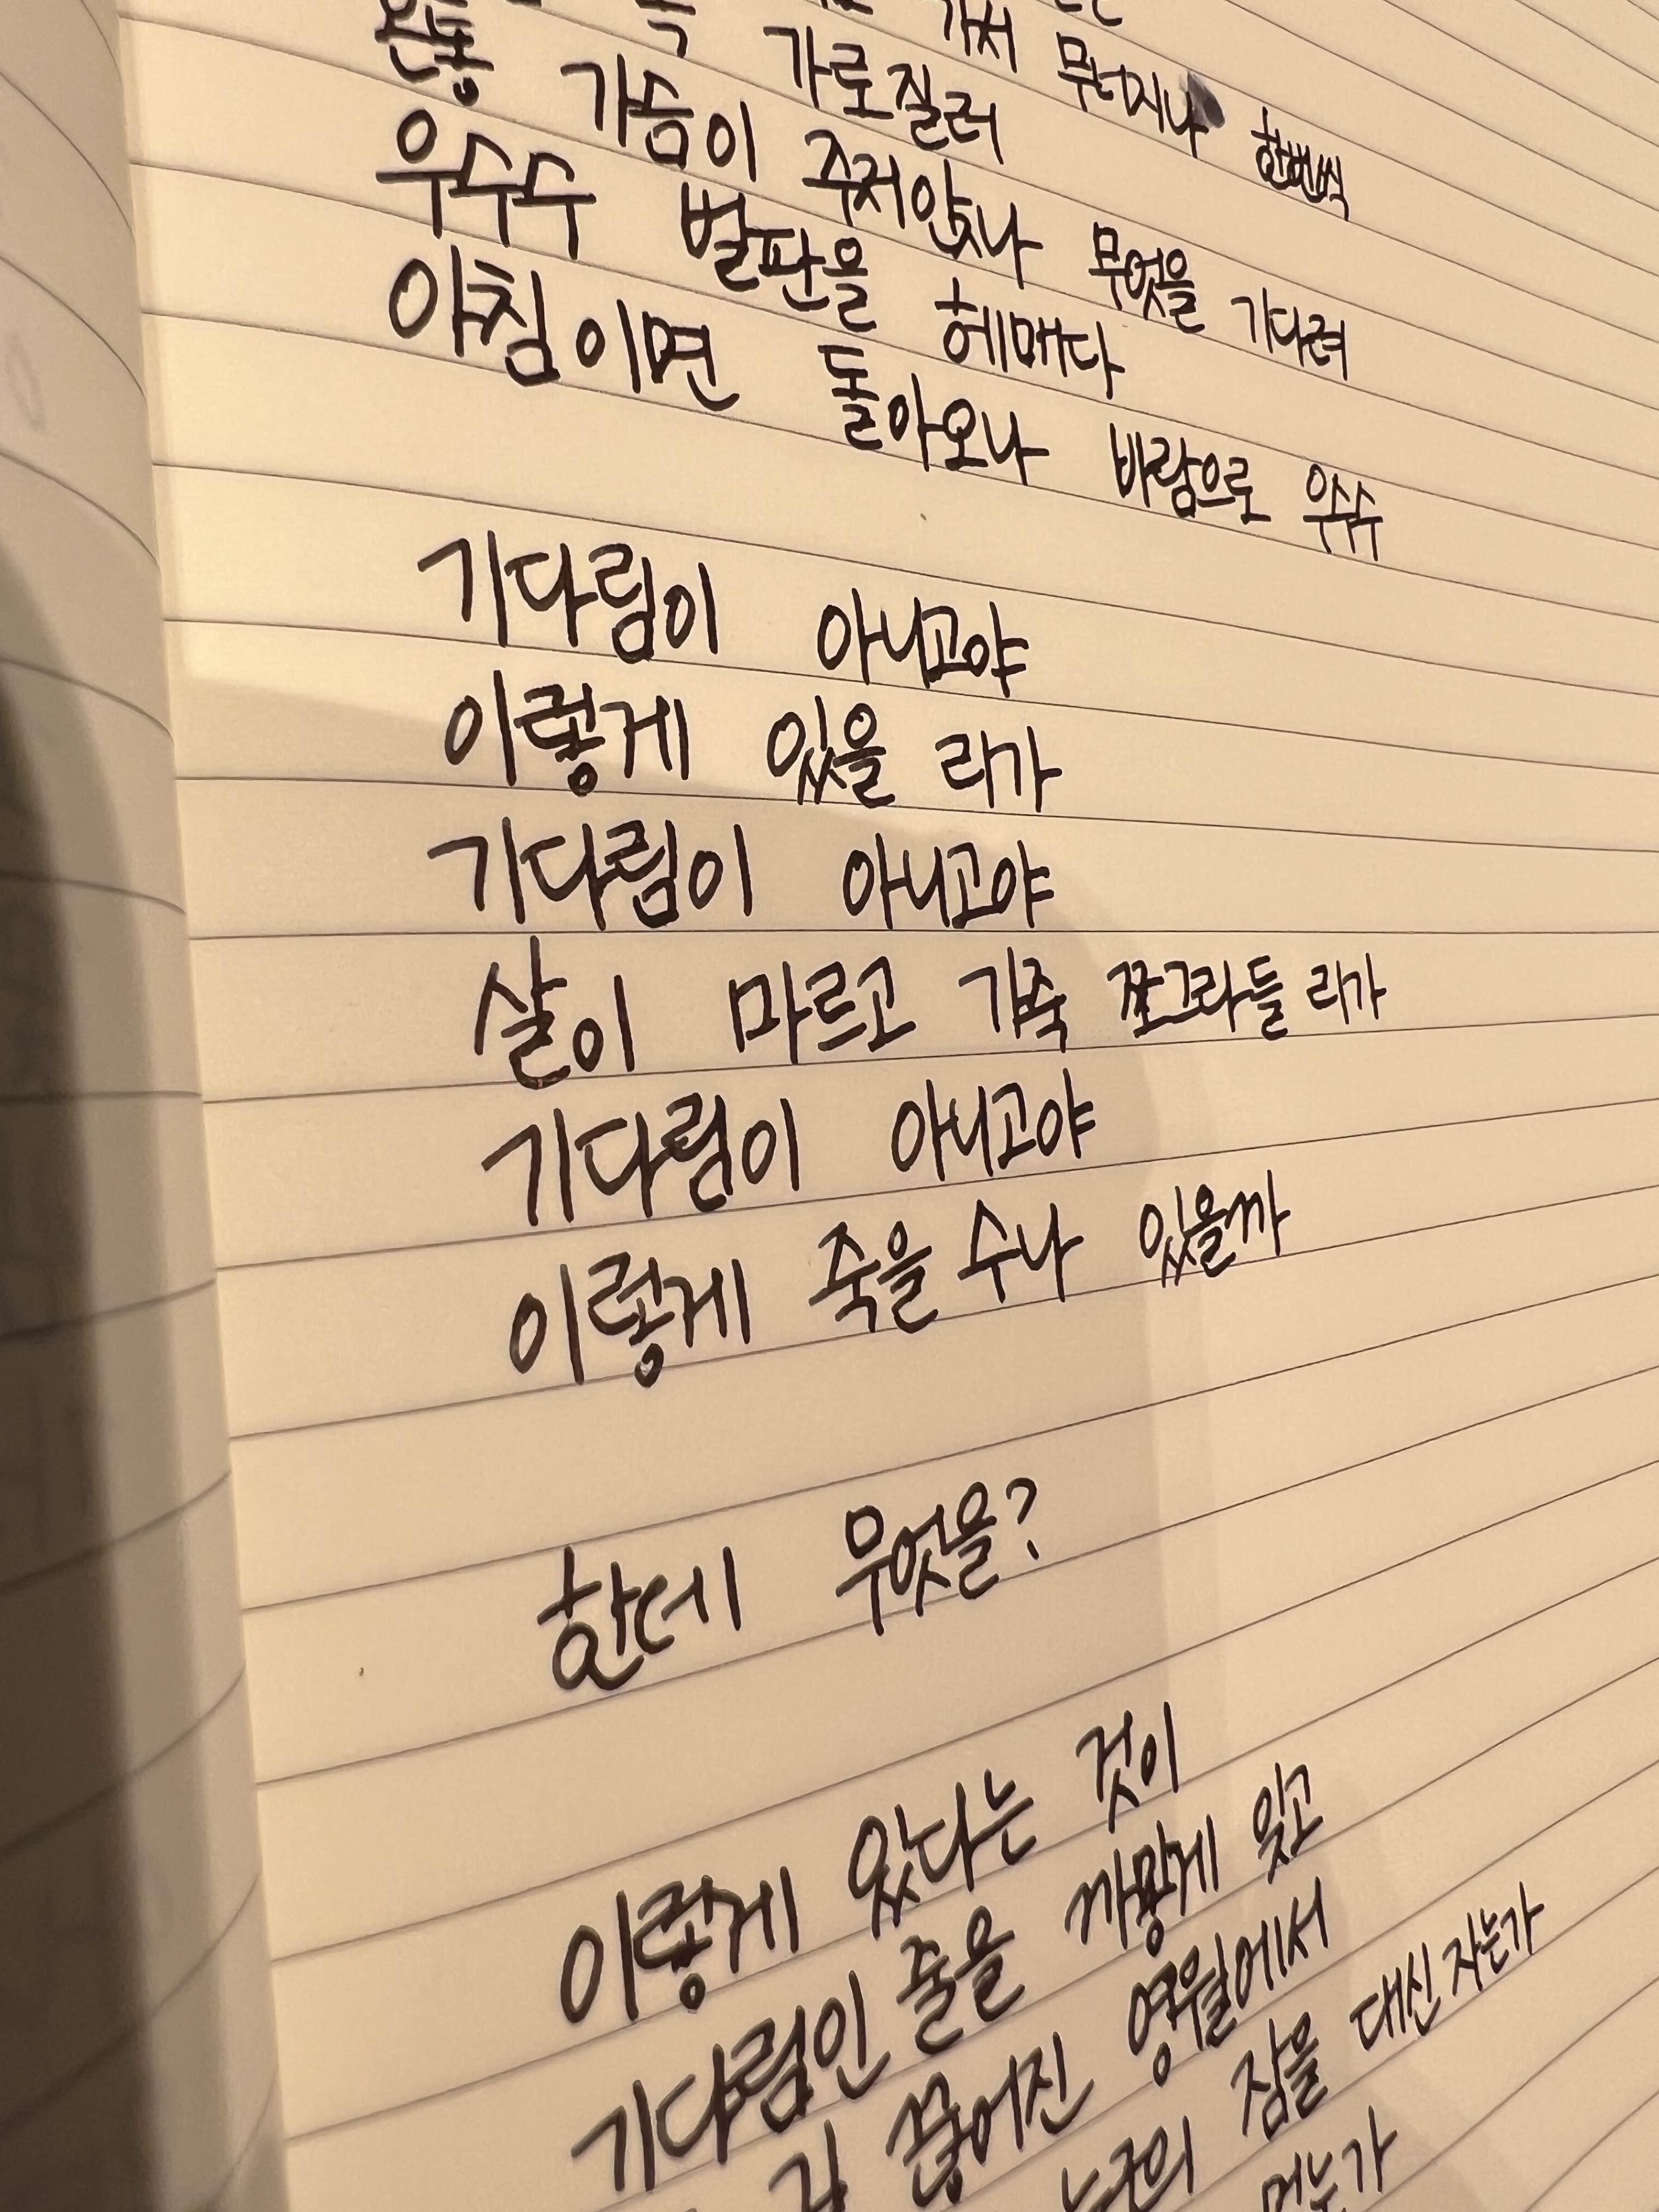 가로질러 무너지나 한번씩
온통 가슴이 주저앉나 무엇을 기다려
우수수 벌판을 헤매다
아침이면 돌아오나 바람으로 우수수
기다림이 아니고야
이렇게 있을 리가
기다림이 아니고야
살이 마르고 가죽 쪼그라들 리가
기다림이 아니고야
이렇게 죽을 수나 있을까
한데 무엇을?
이렇게 있다는 것이
기다림인 줄을 까맣게 잊고
길 끊어진 영월에서
누구의 잠을 대신 자는가
먹는가